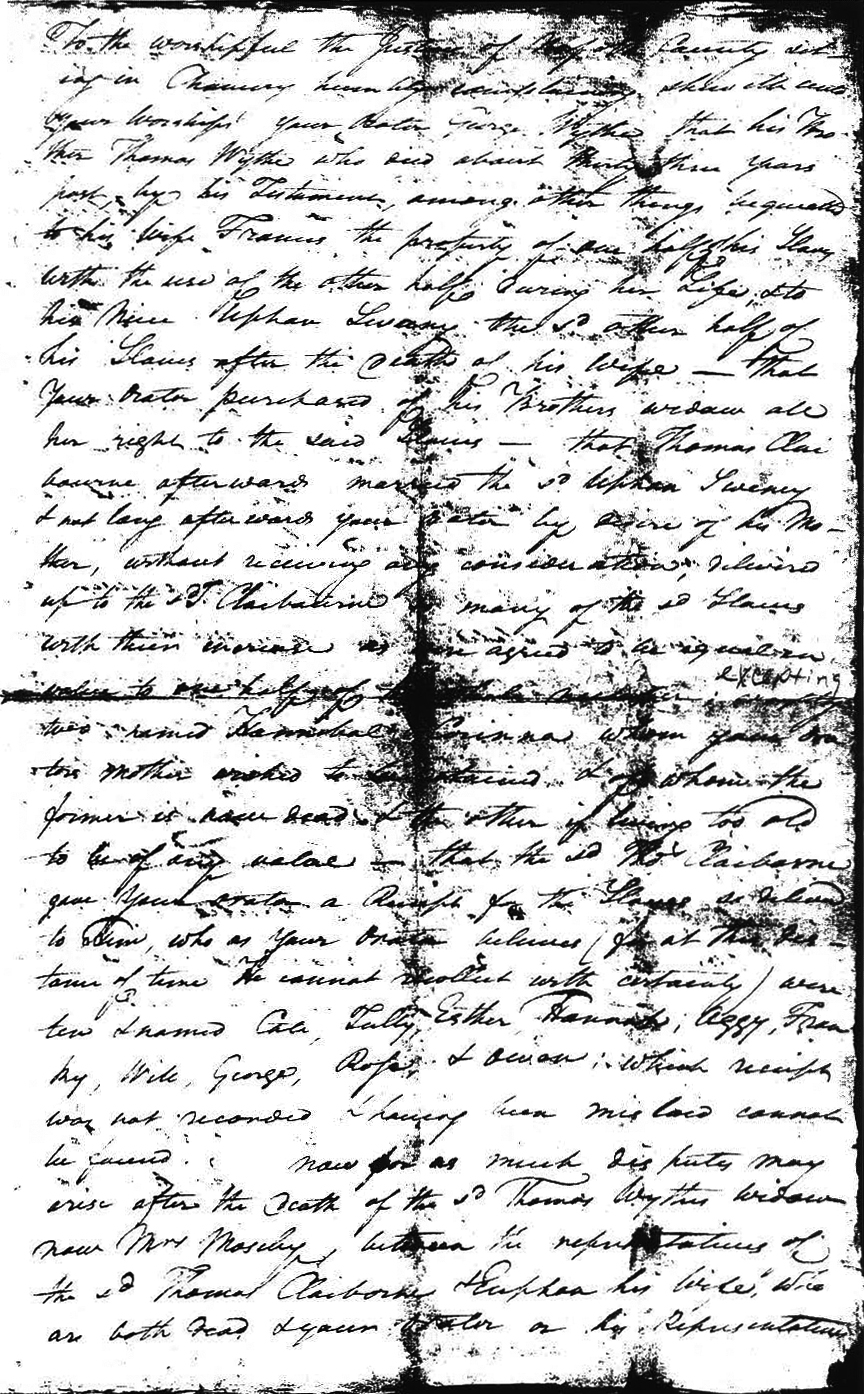 To the worshipful the Justices of County sit-
ing in Chancery humbly complaining sheweth unto
your worships your Orator George Wythe that his Bro-
ther Thomas Wythe who died about thirty three years
past, by his Testament, among other things bequeathed
to his wife Frances the property of one half of his Slaves
with the use of the other half during her Life, & to
his Niece Euphan Sweny the sd other half of
his Slaves after the Death of his wife — that
Your Orator purchased of his Brothers widow all
her right to the said Slaves — that Thomas Clai
bourne afterwards married the sd Euphan Sweney
& not long afterwards your Orator by desire of his Mo-
ther, without receiving any consideration, delivered
up to the sd T. Claibourne as many of the sd Slaves
with their increase as were agreed to be equal in
excepting
value to one half of the whole
two named Hannibal & Corinna whom your Ora
tors mother wished to be retained & of whom the
former is now dead & the other if living too old
to be of any value — that the sd Thos Claiborne
gave Your orator a Receipt for the Slaves so deliver'd
to Him, who as Your Orator believes (for at this dis-
tance of time He cannot recollect with certainty) were
ten & named Cate, Tully, Esther, Hannah, Aggy, Fran
ky, Will, George, Rose, & Owen; which receipt
was not recorded & having been mislaid cannot
be found. now for as much disputes may
arise after the Death of the sd Thomas Wythes widow
now Mrs Moseley, between the representatives of
the sd Thomas Claiborne & Euphan his Wife, who
are both dead & your Orator or his Representatives